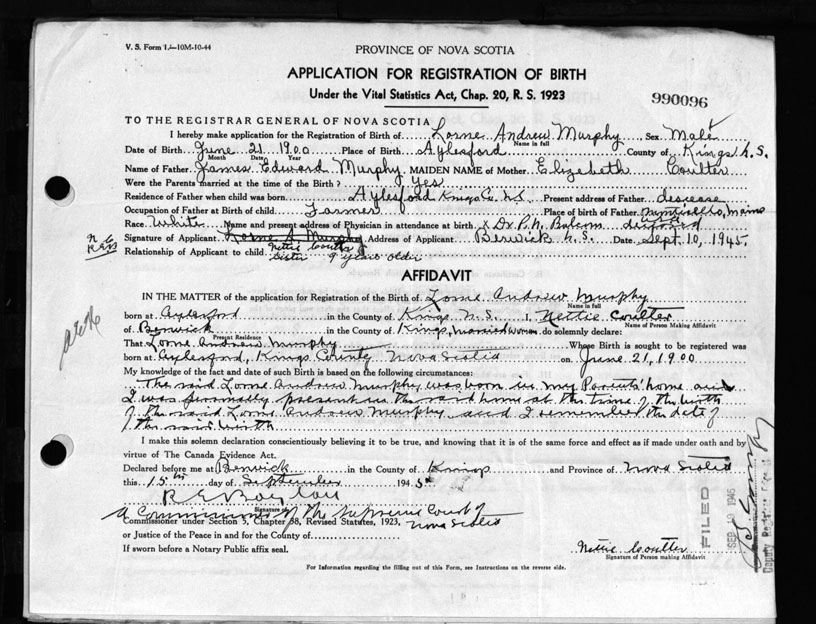 V. S. Form 1.—10M-10-44
PROVINCE OF NOVA SCOTIA
APPLICATION FOR REGISTRATION OF BIRTH
Under the Vital Statistics Act, Chap. 20, R. S. 1923
990096
TO THE REGISTRAR GENERAL OF NOVA SCOTIA
I hereby make application for the Registration of Birth of Lorne Andrew Murphy Sex Male
Name in full
Date of Birth June 21 1900 Place of Birth Aylesford County of Kings N.S.
Month Date Year
Name of Father James Edward Murphy MAIDEN NAME of Mother Elizabeth Coulter
Were the Parents married at the time of the Birth? Yes
Residence of Father when child was born Aylesford Kings Co. N.S Present address of Father desease
Occupation of Father at Birth of child Farmer Place of Birth of Father Monticello, Maine
Race White Name and present address of Physician in attendance at birth x Dr. P. N. Balcom
Signature of Applicant Lorne A Murphy Address of Applicant Berwick N.S. Date Sept. 10, 1945.
Nettie Coulter
Relationship of Applicant to child sister 9 year older
AFFIDAVIT
IN THE MATTER of the application for Registration of the Birth of Lorne Andrew Murphy
Name in full
born at Aylesford in the County of Kings N.S. I, Nettie Coulter
Name of Person Making Affidavit
of Berwick in the County of Kings, married woman do solemnly declare:
Present Residence
That Lorne Andrew Murphy Whose Birth is sought to be registered was
born at Aylesford, Kings County Nova Scotia on June 21, 1900
My knowledge of the fact and date of such Birth is based on the following circumstances:
The said Lorne Andrew Murphy was born in my Parents' home and
I was personally present in the said home at the time of the birth
of the said Lorne Andrew Murphy and I remember the date of
the said birth
I make this solemn declaration conscientiously believing it to be true, and knowing that it is of the same force and effect as if made under oath and by
virtue of The Canada Evidence Act.
Declared before me at Berwick in the County of Kings and Province of Nova Scotia
this 15th day of September 1945
Signature
A Commissioner of the Supreme Court of
Nova Scotia
Commissioner under Section 5, Chapter 38, Revised Statutes, 1923,
or Justice of the Peace in and for the County of
If sworn before a Notary Public affix seal.
Nettie Coulter
Signature of Person making Affidavit
For Information regarding the filling out of this Form, see Instructions on the reverse side.
FILED
SEP 1945
Deputy Registrar